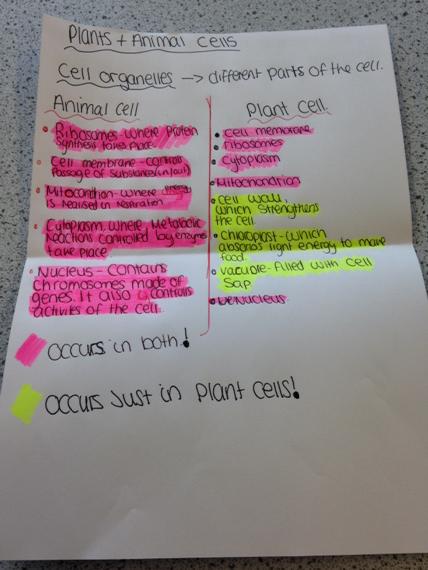 Plants + Animal Cells
Cell organelles -> different parts of the cell.
Animal cell
• Ribosomes - where Protein
Synthesis takes Place.
• Cell membrane - controls
Passage of Substances (in/out)
• Mitocondrion - where energy
is realised in respiration
• Cytoplasm, where Metabolic
reactions controlled by enzymes
take place
• Nucleus - Contains
chromosomes made of
genes. It also controls
activites of the cell.
Plant cell
• cell membrane
• ribosomes
• Cytoplasm
• Mitochondrion
• Cell wall,
which Strengthens
the cell
• Chloroplast - which
absorbs light energy to make
food.
• vacuole - filled with cell
Sap
• Nucleus
Occurs in both!
Occurs Just in plant cells!